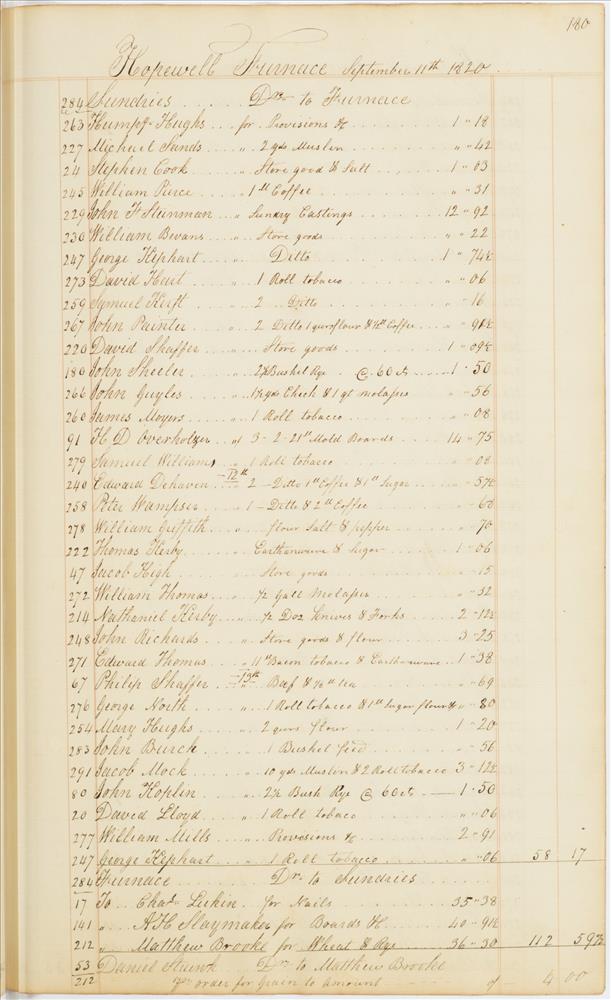 180
Hopewell Furnace September 11th 1820
284 Sundries . . . . . Drs to Furnace
263 Humpy Hughs . . . for Provisions &c . . . . 1 " 18
227 Michael Sands . . . " 2 yds Muslin . . . . " " 42
24 Stephen Cook . . . " Store good & Salt . . . . 1 " 03
245 William Pierce . . . " 1 lb Coffee . . . . " " 31
229 John F Steinman . . . " Sundry Castings . . . . 12 " 92
230 William Bevans . . . " Store goods . . . . " " 22
247 George Hephart . . . " Ditto . . . . 1 " 74½
273 David Hart . . . " 1 Roll tobacco . . . . " " 06
259 Samuel Hufft . . . " 2 Ditto . . . . " " 16
267 John Painter . . . " 2 Ditto 1 qur flour & ½ lb Coffee . . . " " 91½
220 David Shaffer . . . Store goods . . . . 1 " 09½
180 John Sheeler . . . " 2½ Bushel Rye . @ 60 cts . . . 1 " 50
266 John Guyles . . . " 1½ yds Check & 1 qt molasses " " 56
260 James Moyers . . . " 1 Roll tobacco . . . . " " 08
91 H D Overholtzer . . " 3 - 2 - 21 lb Mold Boards . . . . 14 " 75
279 Samuel Williams " 1 Roll tobacco . . . . " " 08
- 12th -
240 Edward Dehaven . . . 2 - Ditto 1 lb Coffee & 1 lb Sugar . . . . " " 57½
258 Peter Wampser . . . 1 - Ditto & 2 lb Coffee . . . . " " 68
278 William Griffith . . " flour Salt & pepper . . . . " " 70
222 Thomas Kerby . . . " Earthanware & Sugar . . . . 1 " 06
47 Jacob High . . . " Store goods . . . . " " 15
272 William Thomas . . . " ½ Gall Molasses . . . . " " 32
214 Nathaniel Kerby . . . " ½ Doz Knives & Forks . . . . 2 " 12½
248 John Richards . . . " Store goods & flour . . . . 3 " 25
271 Edward Thomas . . . " 11 lb Bacon tobacco & Earthanware . . 1 " 38
- 13th -
67 Philip Shaffer . . . " Beef & ¼ lb tea . . . . " " 69
276 George North . . . " 1 Roll tobacco & 1 lb Sugar flour &c " " 80
254 Mary Hughs . . . " 2 qurs flour . . . . 1 " 20
283 John Burch . . . " 1 Bushel feed . . . . " " 56
291 Jacob Mock . . . " 10 yds Muslin & 2 Roll tobacco 3 " 12½
80 John Koplin . . . " 2½ Bush Rye @ 60 cts - 1 " 50
20 David Lloyd . . . " 1 Roll tobaco . . . . " " 06
277 William Mills . . . " Provisions &c . . . . 2 " 91
247 George Hephart . . . " 1 Roll tobacco . . . . " " 06 58 17
284 Furnace . . . . Dr. to Sundries . . . .
17 To Chas Lukin . for Nails . . . . 35 " 38
141 " A H Slaymaker for Boards &c . . . . 40 " 91½
212 " Matthew Brooke for Wheat & Rye . . . . 36 " 30 112 59½
53 Daniel Strunk . . Dr. to Matthew Brooke
212 pr order for Grain to amount of 4 00